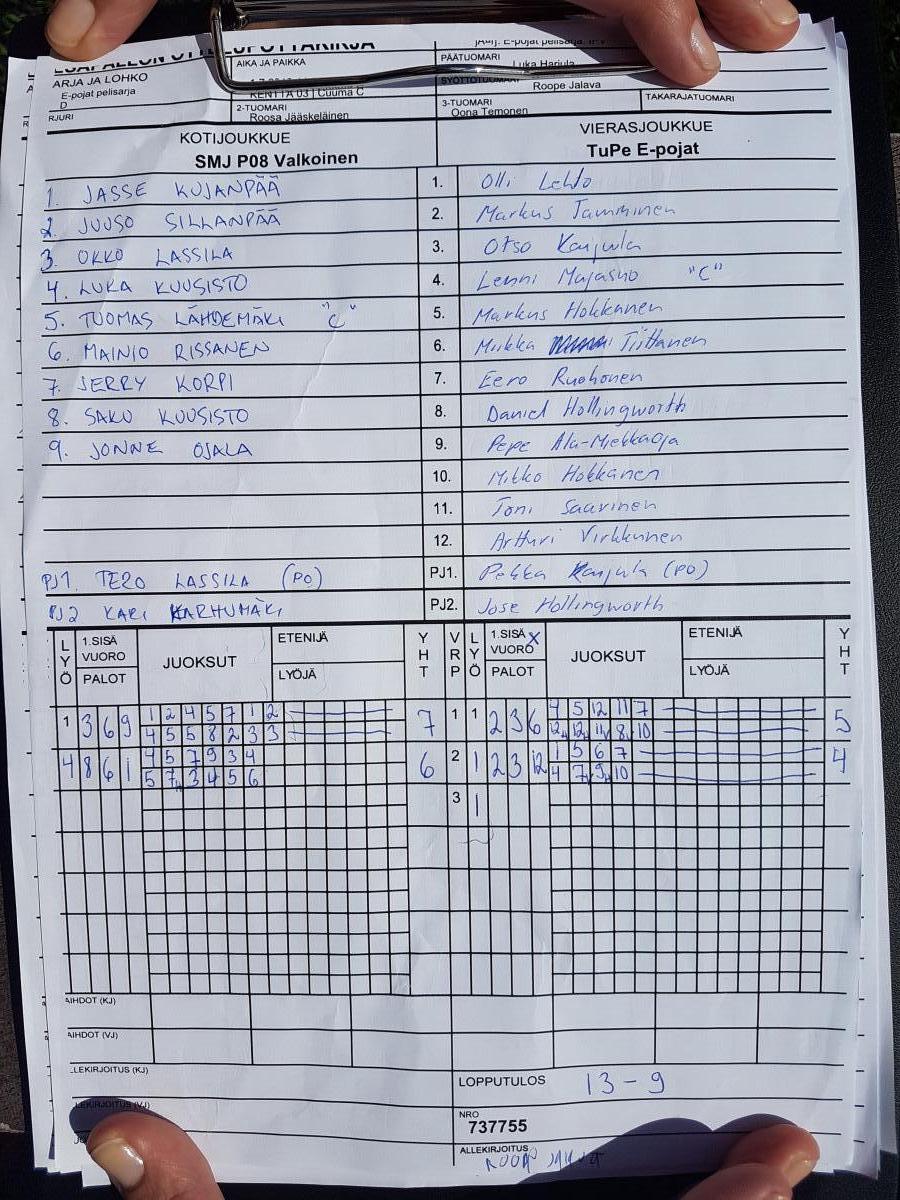 ARJA JA LOHKO
E-pojat pelisarja
D
RJURI
AIKA JA PAIKKA
KENTTÄ 03 | Cuuma C
2-TUOMARI
Roosa Jääskeläinen
PÄÄTUOMARI
Luka Harjula
SYÖTTÖTUOMARI
Roope Jalava
3-TUOMARI
Oona Temonen
TAKARAJATUOMARI
KOTIJOUKKUE
SMJ P08 Valkoinen
VIERASJOUKKUE
TuPe E-pojat
1. JASSE KUJANPÄÄ
1. Olli Lehto
2. JUUSO SILLANPÄÄ
2. Markus Tamminen
3. OKKO LASSILA
3. Otso Karjula
4. LUKA KUUSISTO
4. Lenni Majasuo "C"
5. TUOMAS LÄHDEMÄKI "C"
5. Markus Hokkanen
6. MAINIO RISSANEN
6. Miikka Tiittanen
7. JERRY KORPI
7. Eero Ruohonen
8. SAKU KUUSISTO
8. Daniel Hollingworth
9. JONNE OJALA
9. Pepe Ala-Miekkaoja
10. Mikko Hokkanen
11. Toni Saarinen
12. Artturi Virkkunen
PJ1. TERO LASSILA (PO)
PJ1. Pekka Karjula (PO)
PJ2 KARI KARHUMÄKI
PJ2. Jose Hollingworth
LYÖ
1.SISÄ VUORO
PALOT
JUOKSUT
ETENIJÄ
LYÖJÄ
YHT
VRP
LYÖ
1.SISÄ VUORO X
PALOT
JUOKSUT
ETENIJÄ
LYÖJÄ
YHT
1 3 6 9 1 2 4 5 7 1 2 7
4 5 5 8 2 3 3
1 1 2 3 6 4 5 12 11 7 5
4 8 6 1 4 5 7 9 3 4 6
5 7 3 4 5 6
2 1 2 3 12 1 5 6 7 4
4 7 9 10
3 1
AIHDOT (KJ)
AIHDOT (VJ)
LEKIRJOITUS (KJ)
LEKIRJOITUS (VJ)
LOPPUTULOS 13 - 9
NRO
737755
ALLEKIRJOITUS